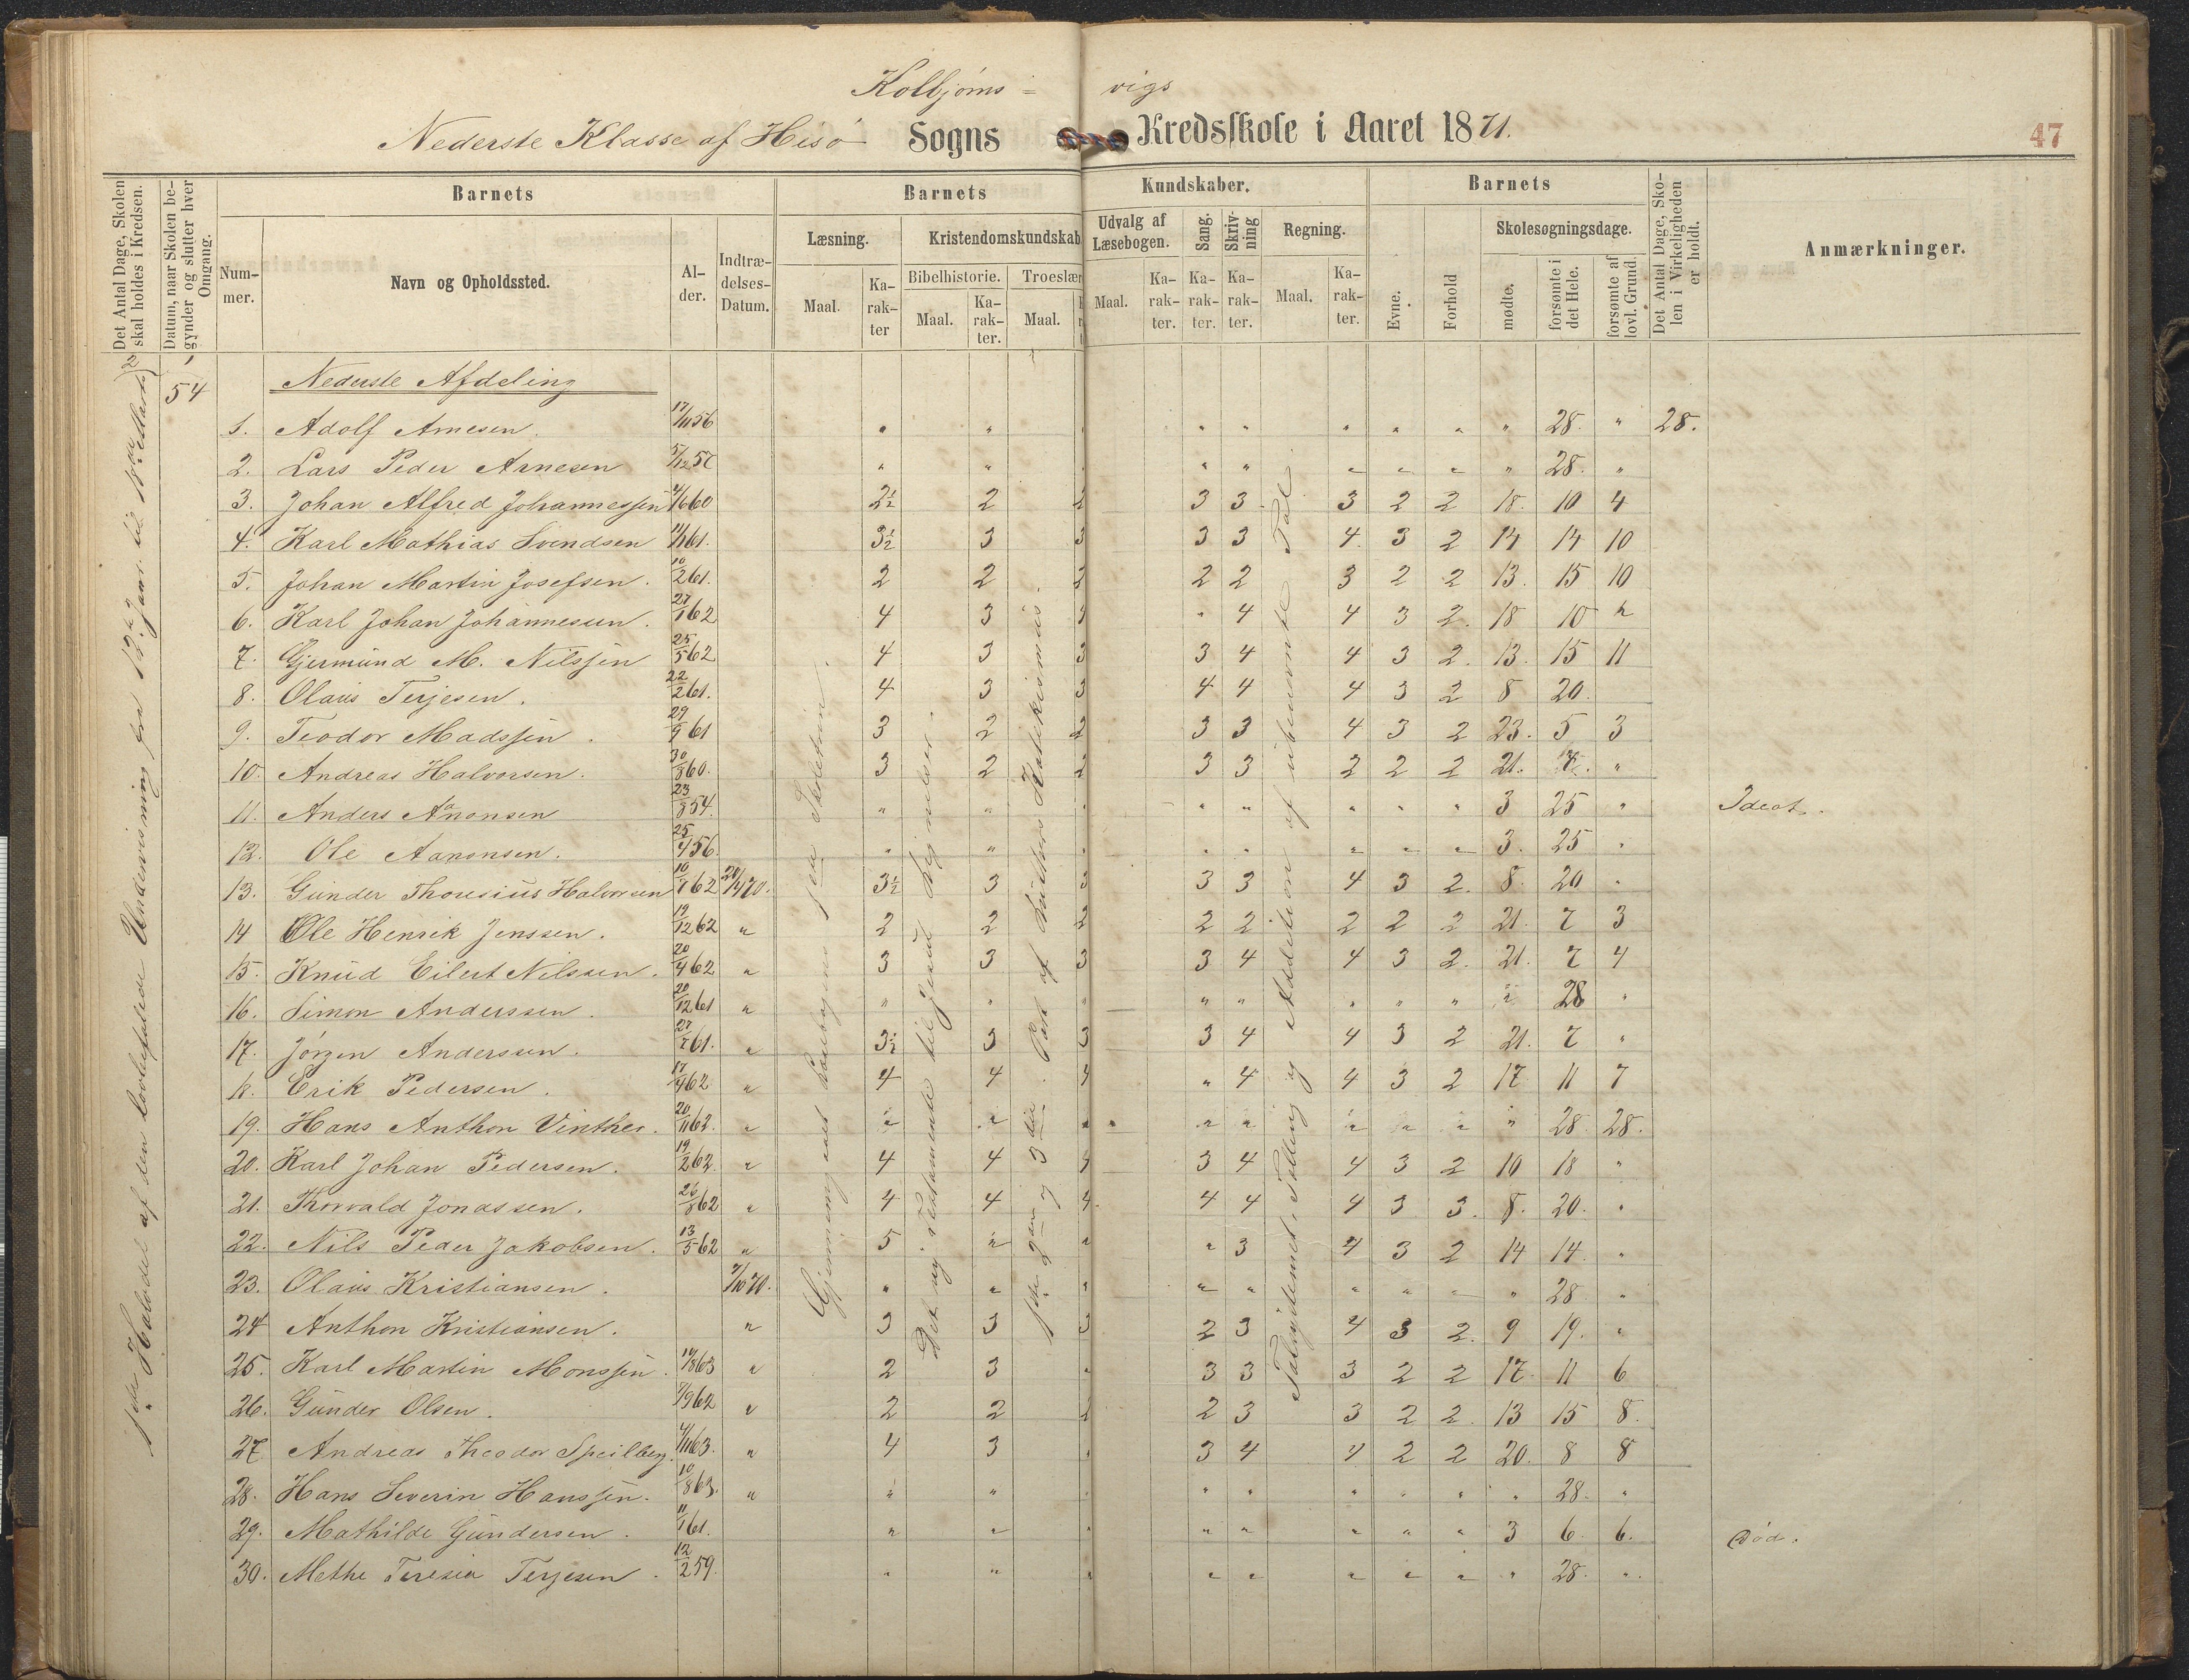 Kolbjørns = vigs
Nederste Klasse af Hisø Sogns Kredsskole i Aaret 1871.
47
Det Antal Dage, Skolen skal holdes i Kredsen.
Datum, naar Skolen begynder og slutter hver Omgang.
Barnets
Barnets
Kundskaber.
Barnets
Det Antal Dage, Skolen i Virkeligheden er holdt.
Anmærkninger.
Nummer.
Navn og Opholdssted.
Alder.
Indtrædelses-Datum.
Læsning.
Kristendomskundskab
Udvalg af Læsebogen.
Sang.
Skrivning
Regning.
Evne.
Forhold
Skolesøgningsdage.
Bibelhistorie.
Troeslær
Maal.
Karakter
Maal.
Karakter.
Maal.
Maal.
Karakter.
Karakter.
Karakter.
Maal.
Karakter.
mødte.
forsømte i det Hele.
forsømte af lovl. Grund.
54
Nederste Afdeling
1. Adolf Arnesen. 17/11 56 " " " " " " " " 28. " 28.
2. Lars Peder Arnesen 5/12 57 " " " " " " " " 28. "
3. Johan Alfred Johannessen 4/6 60 2½ 2 2 3 3 3 2 2 18. 10 4
4. Karl Mathias Svendsen 11/1 61. 3½ 3 3 3 3 4. 3 2 14 14 10
5. Johan Martin Josefsen. 10/2 61. 2 2 2 2 2 3 2 2 13. 15 10
6. Karl Johan Johannesen. 27/1 62 4 3 3 " 4 4 3 2. 18 10 "
7. Gjermund M. Nilssen 25/5 62 4 3 3 3 4 4 3 2. 13. 15 11
8. Olaus Terjesen. 22/2 61. 4 3 3 4 4 4 3 2 8 20.
9. Teodor Madssen. 29/9 61 3 2 2 3 3 4 3 2 23. 5 3
10. Andreas Halvorsen. 30/8 60. 3 2 2 3 3 2 2 2 21. 7. "
11. Anders Aanonsen 23/8 54. " " " " " " " 3 25 " Ideot.
12. Ole Aanonsen. 25/4 56. " " " " " " " 3. 25 "
13. Gunder Thoresius Halvorsen 10/7 62 20/4 70. 3½ 3 3 3 3 4 3 2. 8. 20 "
14 Ole Henrik Jenssen. 19/12 62 " 2 2 2 2 2 2 2 2 21. 7 3
15. Knud Eilert Nilssen. 20/4 62 " 3 3 3 3 4 4 3 2. 21. 7 4
16. Simon Anderssen. 20/12 61 " " " " " " " " " " 28 "
17. Jørgen Anderssen. 27/7 61. " 3½ 3 3 3 4 4 3 2 21. 7 "
18. Erik Pedersen. 17/4 62 " 4 4 4 " 4 4 3 2 17 11 7
19. Hans Anthon Vinther. 20/11 62. " " " " " " " " " " 28 28.
20. Karl Johan Pedersen. 19/2 62. " 4 4 4 3 4 4 3 2 10 18 "
21. Torvald Jonassen. 26/8 62 " 4 4 4. 4 4 4 3 3. 8. 20. "
22. Nils Peder Jakobsen. 13/5 62 " 5 " " " 3 4 3 2 14 14. "
23. Olaus Kristiansen. 7/10 70. " " " " " " " " " 28 "
24 Anthon Kristiansen. " 3 3 3 2 3 4 3 2. 9 19. "
25. Karl Martin Monssen. 14/8 63 " 2 3 " 3 3 3 2 2 17. 11 6
26. Gunder Olsen. 7/9 62 " 2 2 2 2 3 3 2 2. 13 15 8.
27 Andreas Theodor Speilberg. 4/11 63. " 4 3 " 3 4 4 2 2 20. 8 8
28. Hans Severin Hanssen. 10/8 63. " " " " " " " " " 28. "
29. Mathilde Gundersen. 11/1 61. " " " " " " " " 3 6. 6. Død.
30. Methe Teresia Terjesen. 12/2 59. " " " " " " " " " 28. "
1ste Halvdel af den lovbefalede Undervisning fra 12te Januar til 18de Marts
Gjennemgaaet Læsebogens
Det ny Testamente til Jesu Lignelser.
1ste 2den og 3die Part af Luthers Katekismus.
Talsystemet, Telling og Addition af ubenævnte Tal.